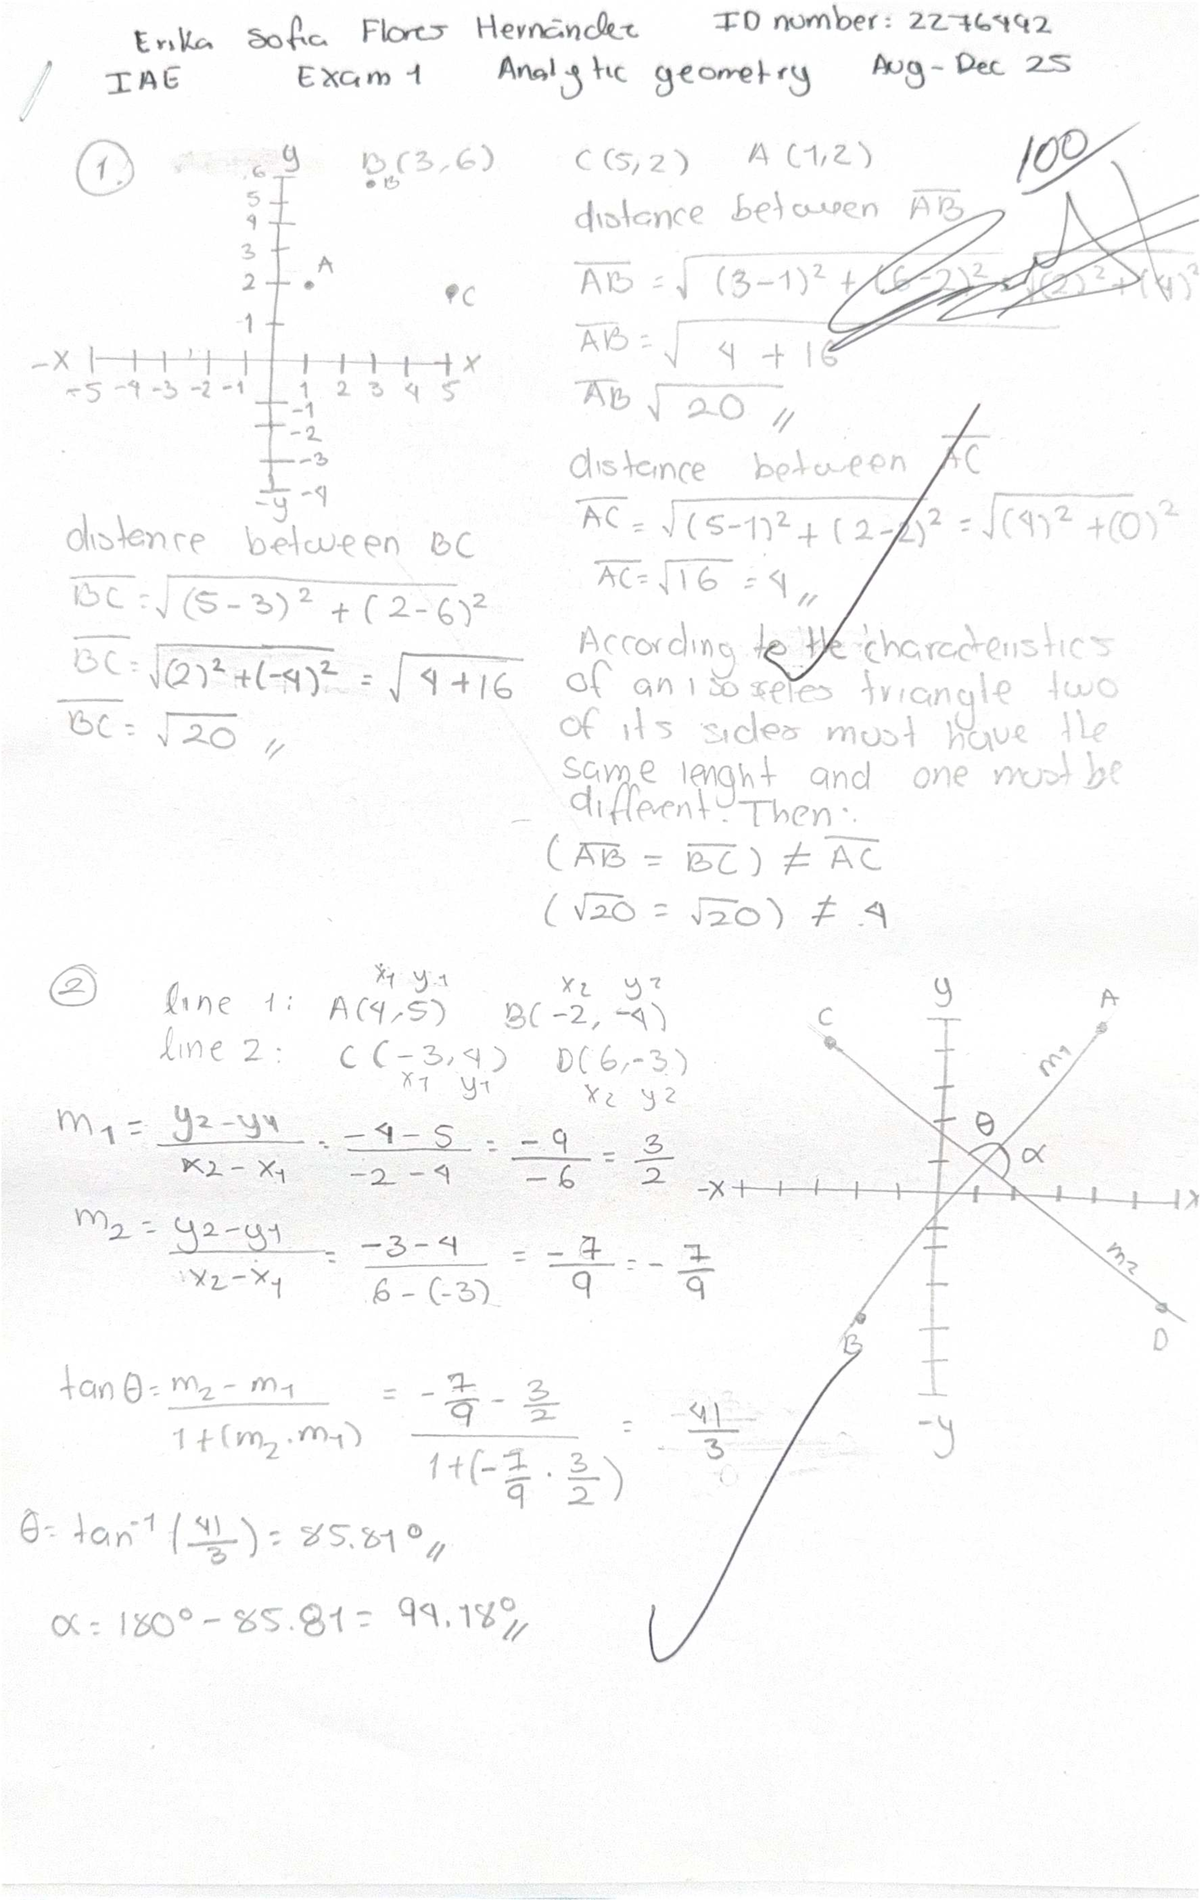 Erika Sofia Flores Hernández ID number: 2276492
IAE Exam 1 Analytic geometry Aug-Dec 25
100
1. B(3,6) C(5,2) A(1,2)
y
6
5
4
3
2
1
B
A
C
-x -5 -4 -3 -2 -1 1 2 3 4 5 x
-1
-2
-3
-4
-y
distance between BC
BC = √(5-3)² + (2-6)²
BC = √(2)² + (-4)² = √4+16
BC = √20 //
distance between AB
AB = √(3-1)² + (6-2)² = √(2)² + (4)²
AB = √4 + 16
AB √20 //
distance between AC
AC = √(5-1)² + (2-2)² = √(4)² + (0)²
AC = √16 = 4 //
According to the characteristics
of an isoseles triangle two
of its sides must have the
same lenght and one must be
different. Then:
(AB = BC) ≠ AC
(√20 = √20) ≠ 4
2 x1 y1 x2 y2
line 1: A(4,5) B(-2,-4)
line 2: C(-3,4) D(6,-3)
x1 y1 x2 y2
m1 = y2-y1 / x2-x1 = -4-5 / -2-4 = -9/-6 = 3/2
m2 = y2-y1 / x2-x1 = -3-4 / 6-(-3) = -7/9 = -7/9
tan θ = m2-m1 / 1+(m2·m1) = -7/9 - 3/2 / 1+(-7/9 · 3/2) = 41/3
θ = tan⁻¹ (41/3) = 85.81° //
α = 180° - 85.81 = 94.18° //
y
C A
m1
θ
α
-x x
m2
B D
-y